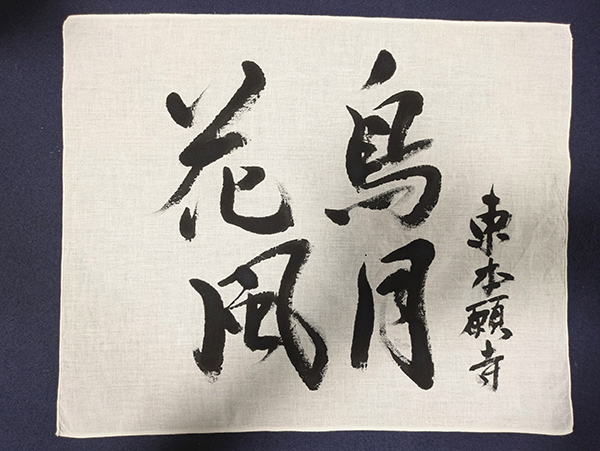 東本願寺
鳥月
花風